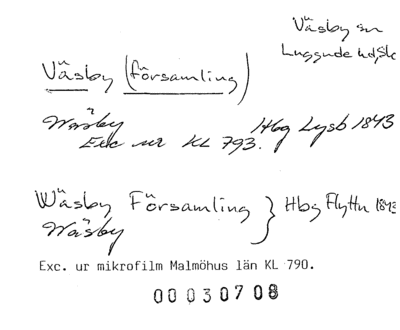 Väsby sn
Luggude hd, Sk
Väsby (församling)
Wäsby Hbg Lysb 1843
Exc ur KL 793.
Wäsby Församling } Hbg Flyttn 1843
Wäsby
Exc. ur mikrofilm Malmöhus län KL 790.
00030708